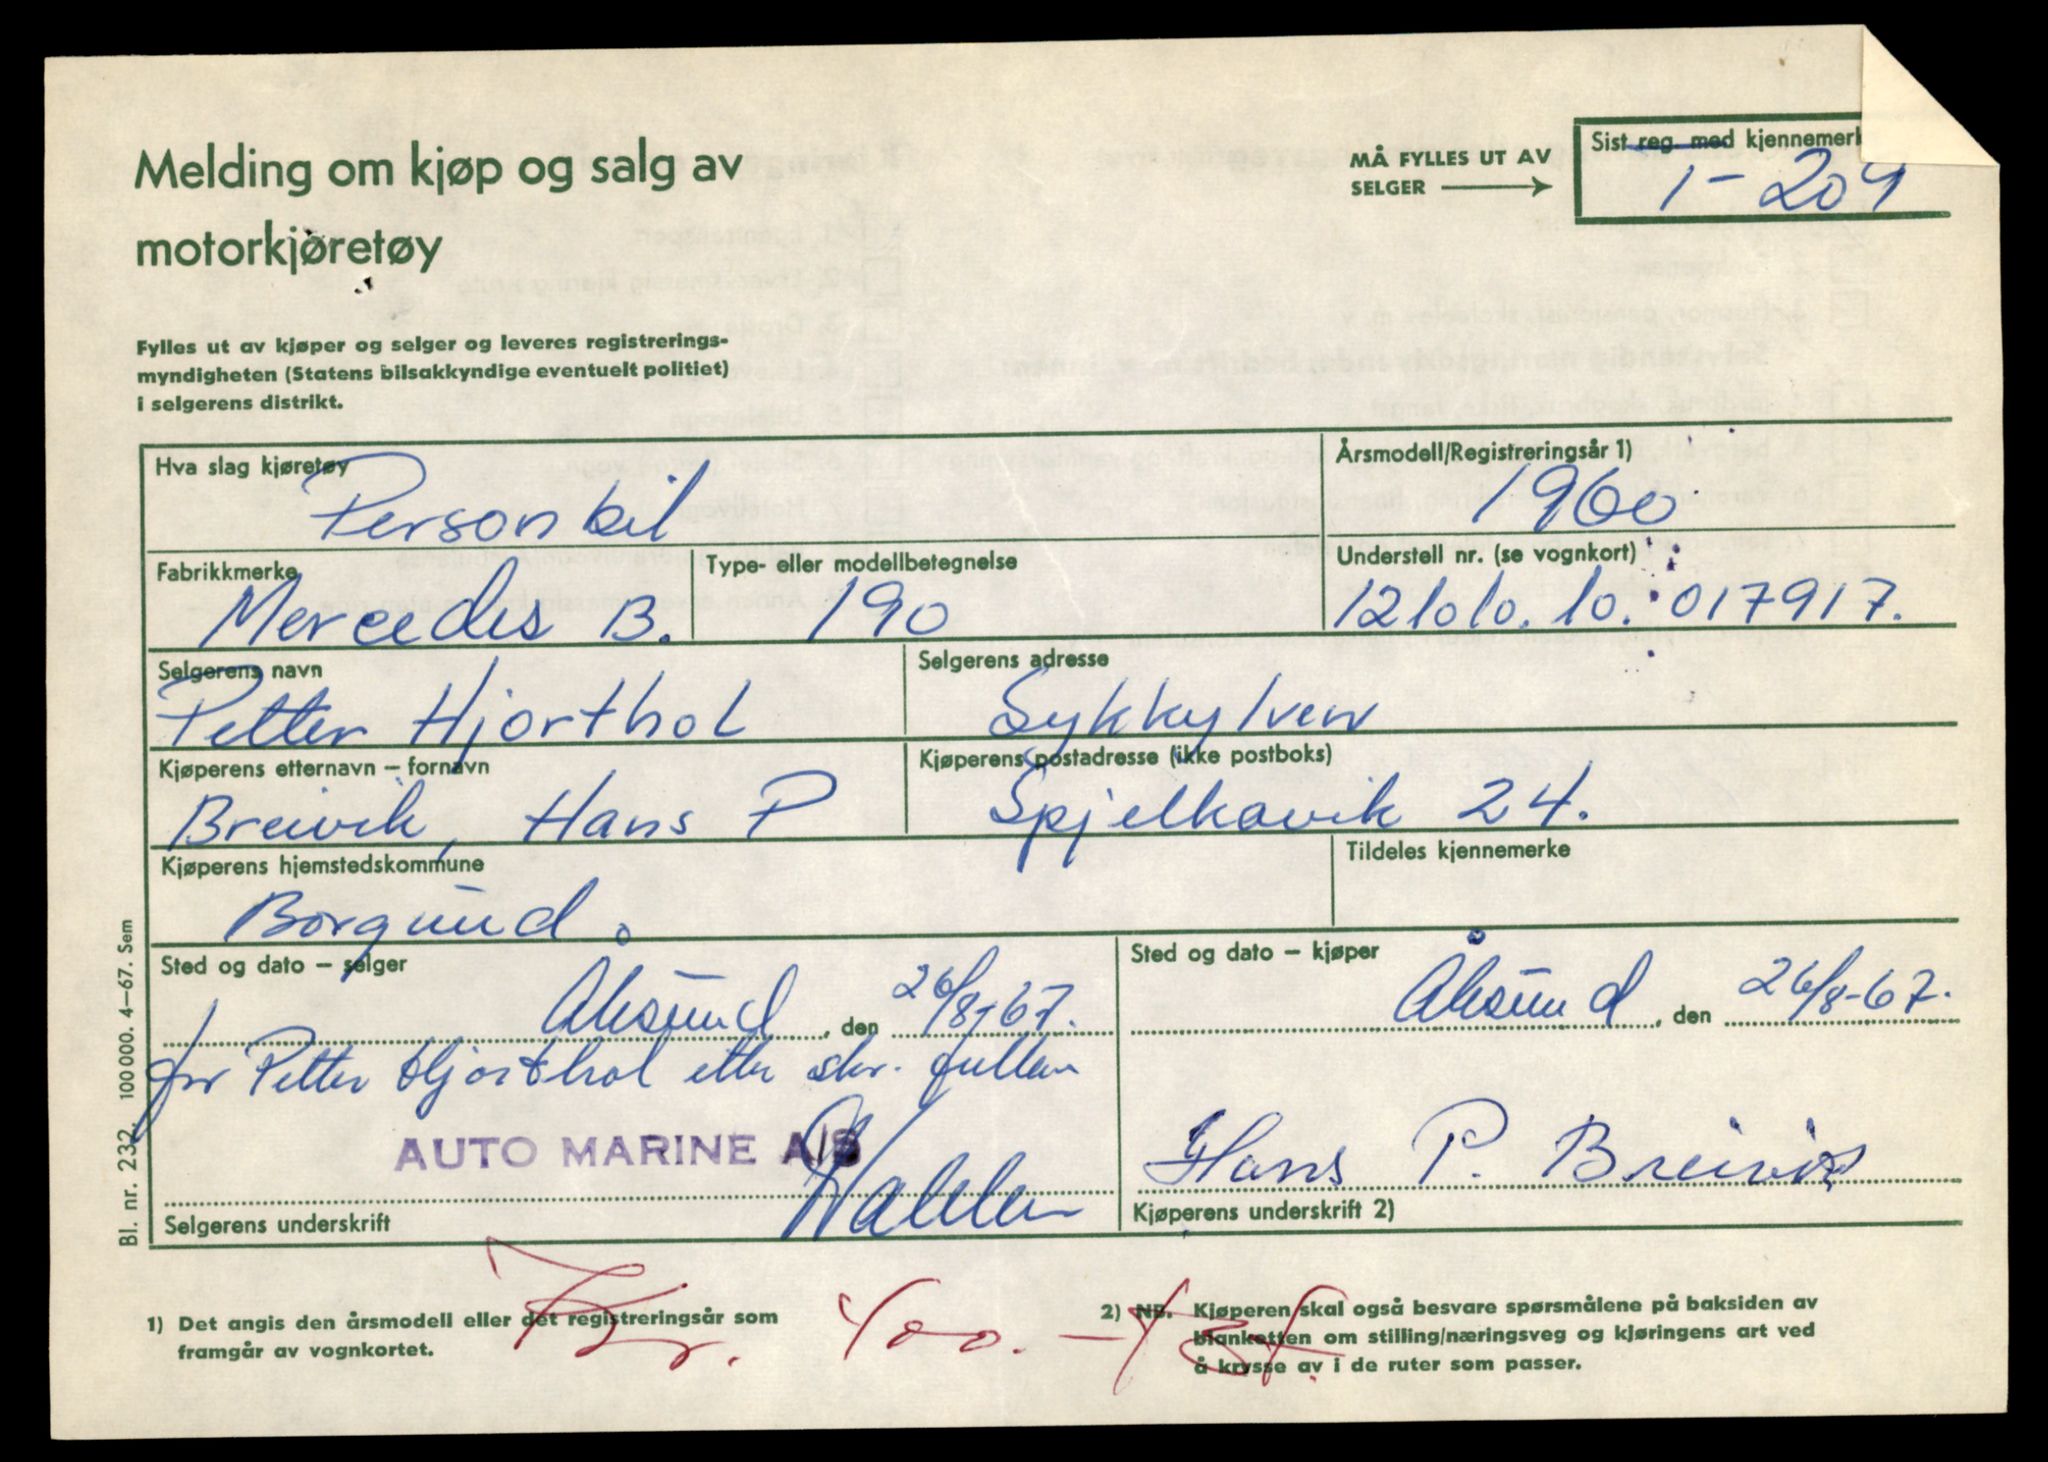 Melding om kjøp og salg av
motorkjøretøy
MÅ FYLLES UT AV
SELGER
Sist reg. med kjennemerk
1-204
Fylles ut av kjøper og selger og leveres registrerings-
myndigheten (Statens bilsakkyndige eventuelt politiet)
i selgerens distrikt.
Hva slag kjøretøy
Personbil
Årsmodell/Registreringsår 1)
1960
Fabrikkmerke
Mercedes B.
Type- eller modellbetegnelse
190
Understell nr. (se vognkort)
121010.10.017917.
Selgerens navn
Petter Hjorthol
Selgerens adresse
Sykkylven
Kjøperens etternavn – fornavn
Breivik, Hans P
Kjøperens postadresse (ikke postboks)
Spjelkavik 24.
Kjøperens hjemstedskommune
Borgund.
Tildeles kjennemerke
Sted og dato – selger
Ålesund, den 26/8-67.
Sted og dato – kjøper
Ålesund, den 26/8-67.
for Petter Hjorthol etter skr. fullm
AUTO MARINE A/S
Selgerens underskrift
Hans P. Breivik
Kjøperens underskrift 2)
Bl. nr. 232. 100 000. 4–67. Sem
1) Det angis den årsmodell eller det registreringsår som
framgår av vognkortet.
Kr. 400.-
2) NB. Kjøperen skal også besvare spørsmålene på baksiden av
blanketten om stilling/næringsveg og kjøringens art ved
å krysse av i de ruter som passer.